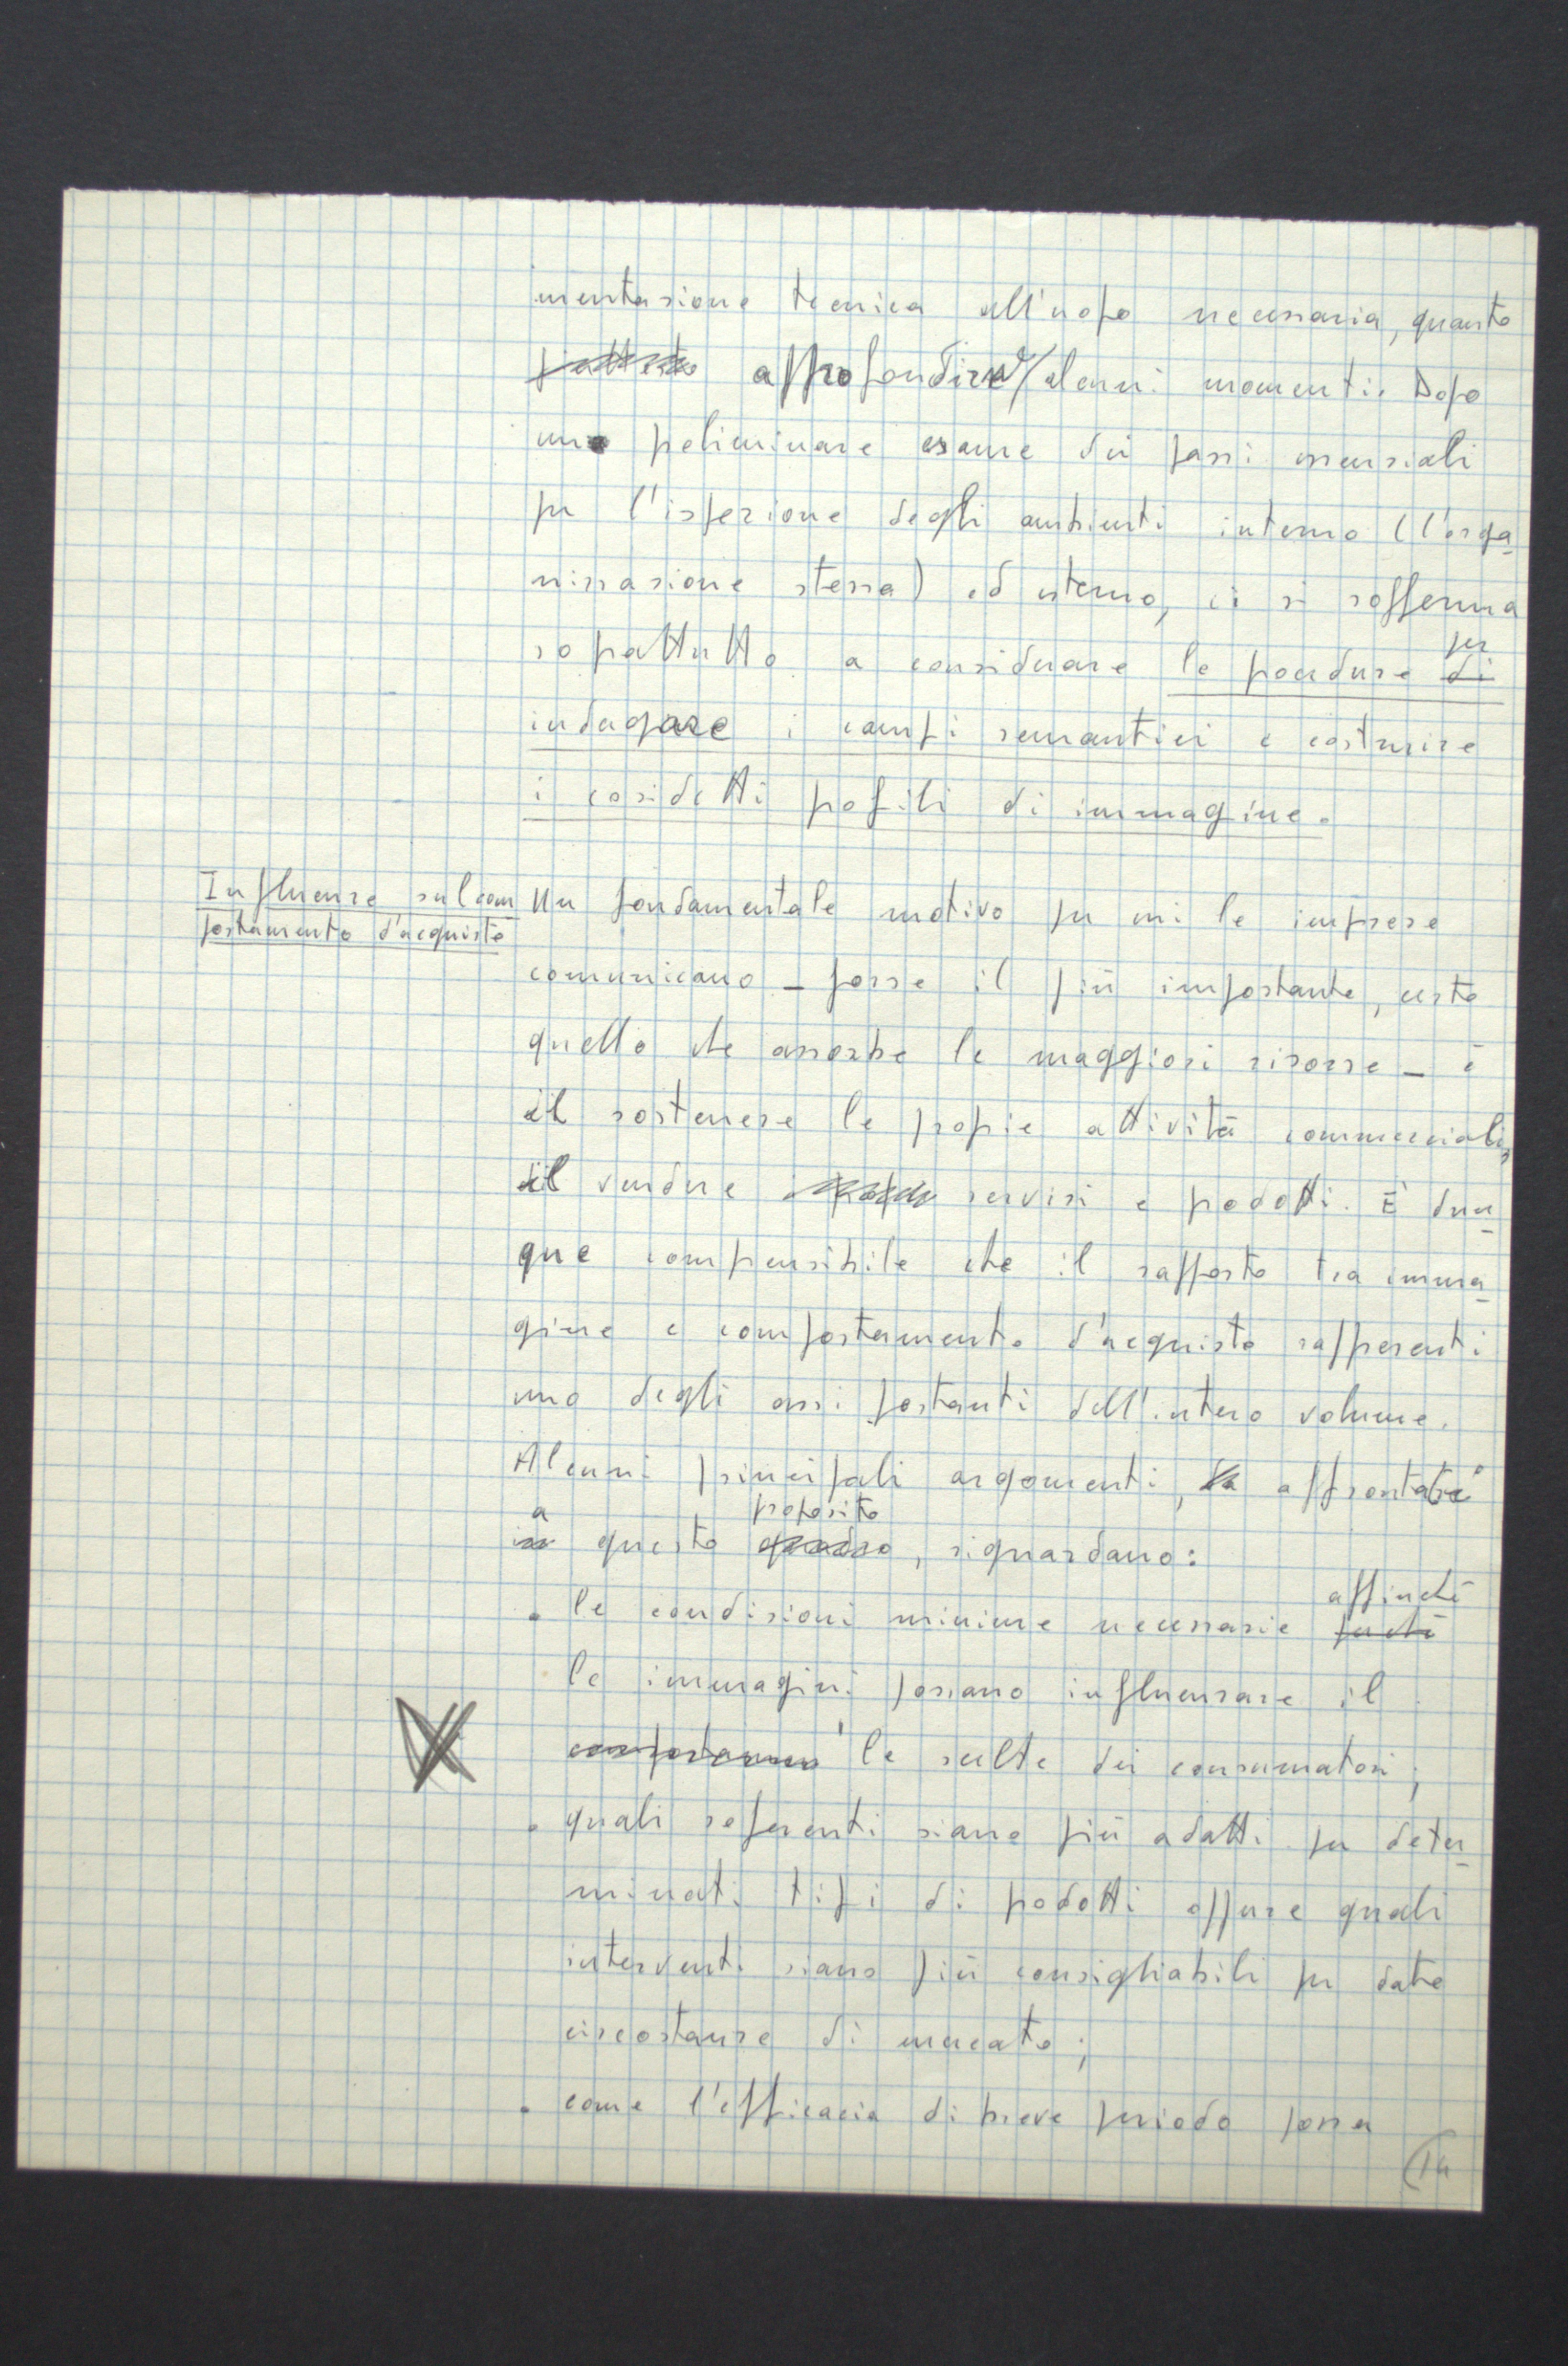 mentazione tecnica all'uopo necessaria, quanto
approfondire alcuni momenti. Dopo
un preliminare esame dei passi essenziali
per l'ispezione degli ambienti interno (l'orga-
nizzazione stessa) ed esterno, ci si sofferma
soprattutto a considerare le procedure di per
indagare i campi semantici e costruire
i cosidetti profili di immagine.
Influenze sul com
portamento d'acquisto
Un fondamentale motivo per cui le imprese
comunicano – forse il più importante, certo
quello che assorbe le maggiori risorse – è
il sostenere le proprie attività commerciali,
il vendere servizi e prodotti. È dun-
que comprensibile che il rapporto tra imma-
gine e comportamento d'acquisto rappresenti
uno degli assi portanti dell'intero volume.
Alcuni principali argomenti, affrontati
a proposito
in questo quadro, riguardano:
affinché
. le condizioni minime necessarie perché
le immagini possano influenzare il
comportamen le scelte dei consumatori;
. quali referenti siano più adatti per deter-
minati tipi di prodotti oppure quali
interventi siano più consigliabili per date
circostanze di mercato;
. come l'efficacia di breve periodo possa
14